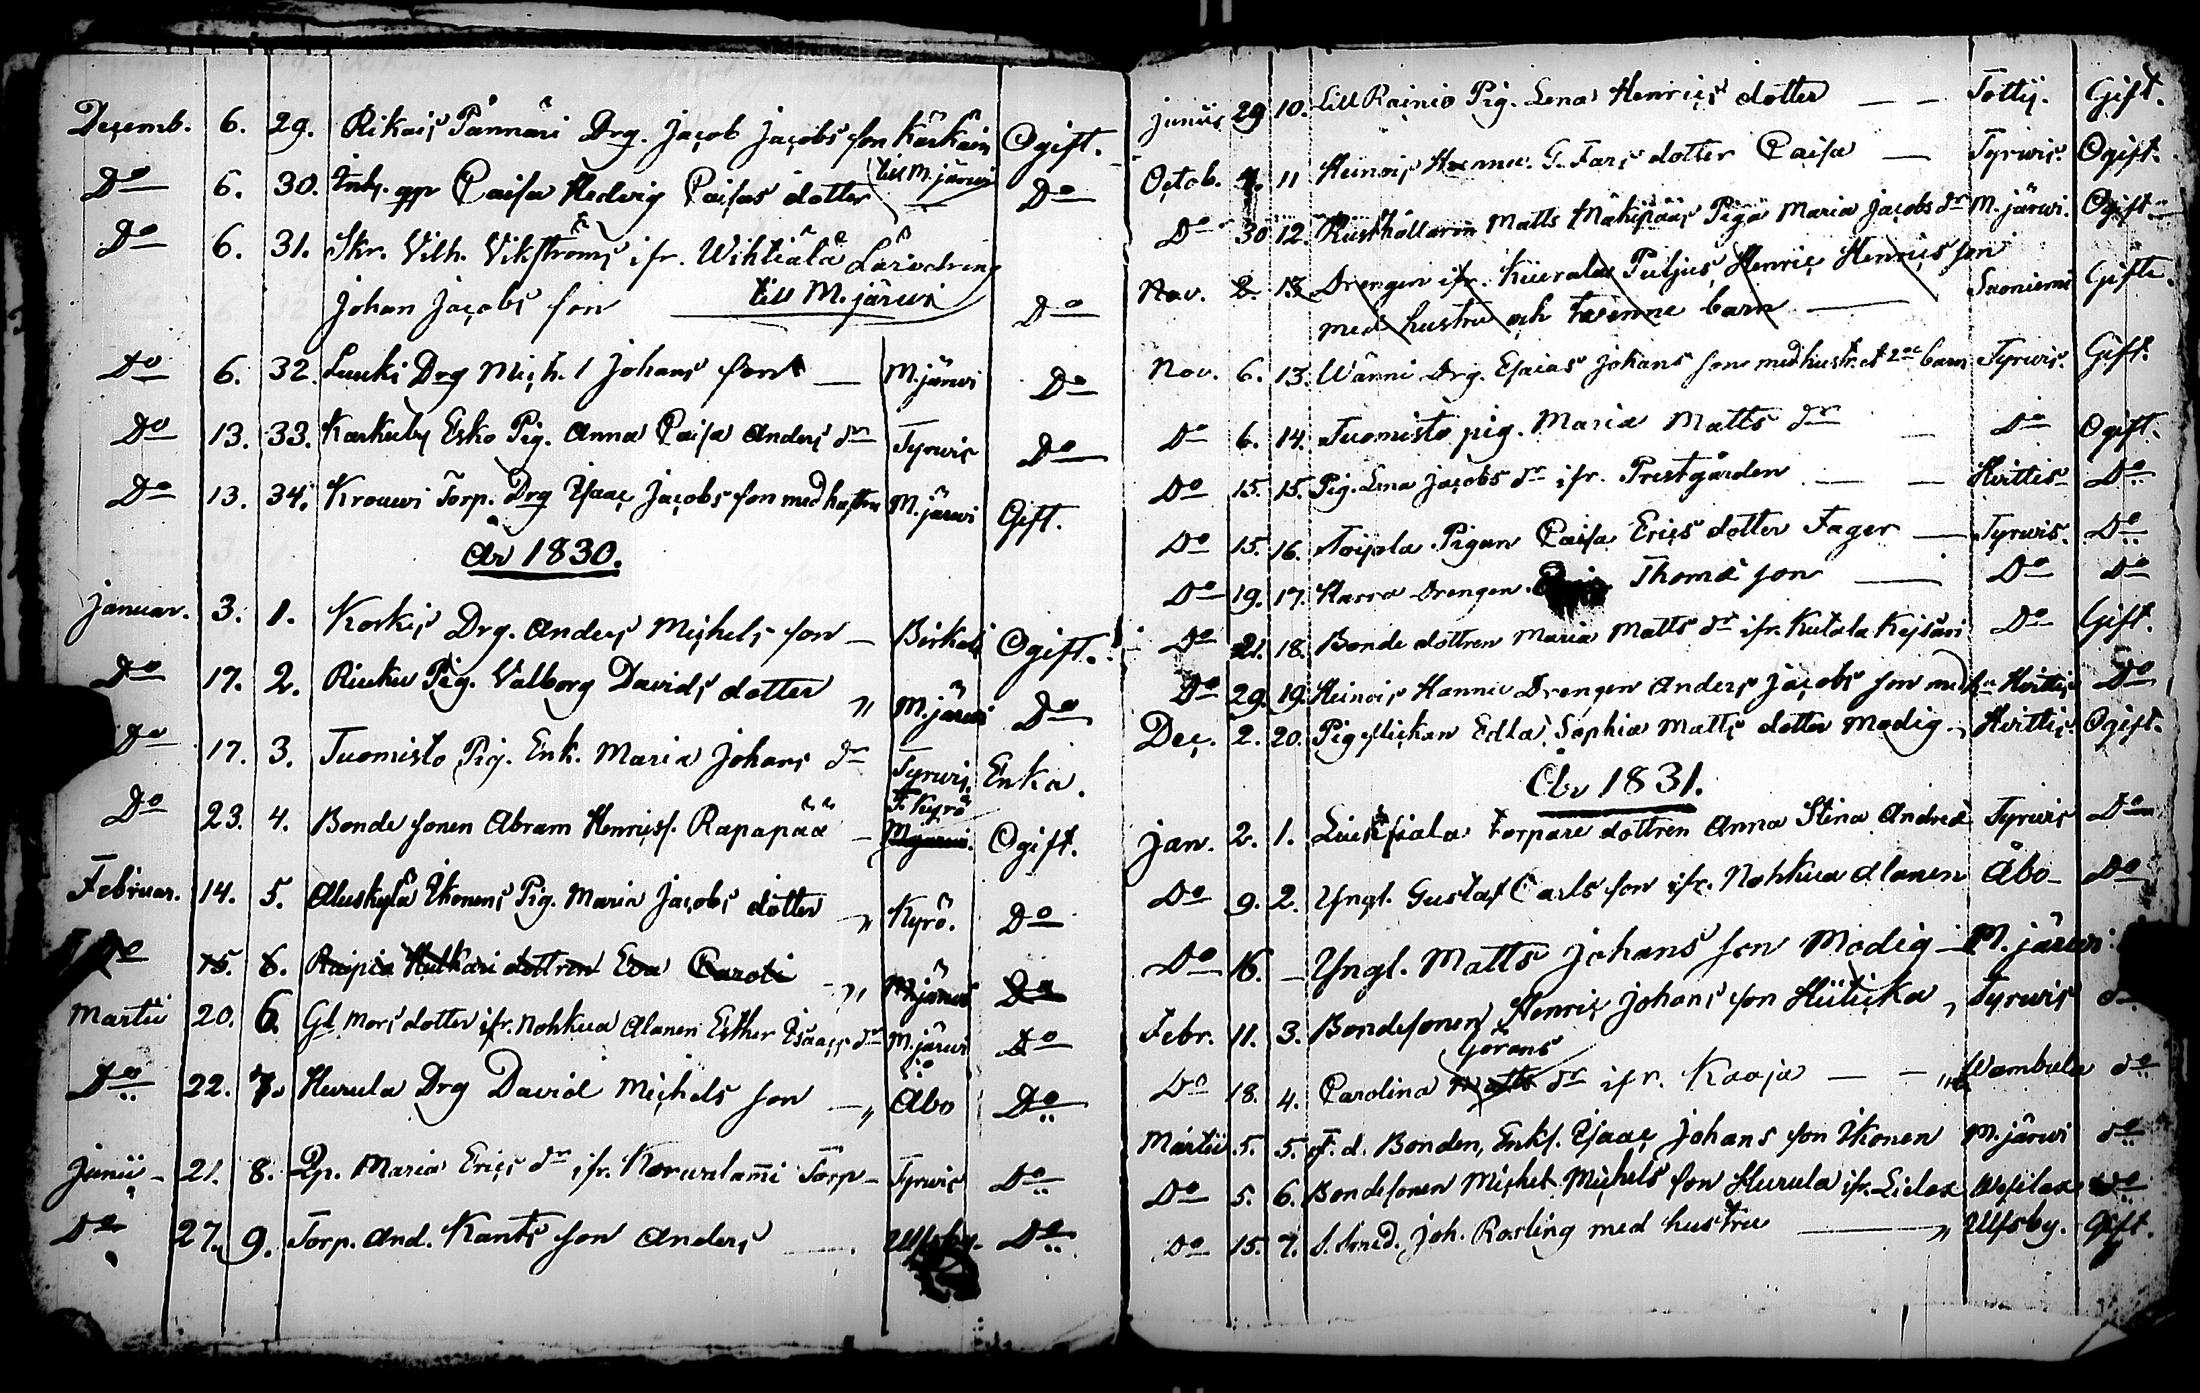 Decemb. 6. 29. Rikais Pånnäri Drg. Jacob Jacobs son Kärkäin Ogift.
Do 6. 30. Inh. gp Caisa Hedvig Caisas dotter till M.järwi Do
Do 6. 31. Skr. Vilh. Vikströms ifr. Wihtiälä Läriedreng
Johan Jacobs son till M.järwi Do
Do 6. 32. Luuki Drg Mich. Johans son M.järwi Do
Do 13. 33. Karkuby Esko Pig. Anna Caisa Anders dr Tyrwis Do
Do 13. 34. Krouwi Torp. Drg Ysaac Jacobs son med hustru M.järwi Gift.
År 1830.
Januar. 3. 1. Korkis Drg. Anders Michels son Birkala Ogift.
Do 17. 2. Riuku Pig. Valborg Davids dotter M.järwi Do
Do 17. 3. Tuomisto Pig. Enk. Maria Johans dr Tyrwis Enka.
Do 23. 4. Bonde sonen Abram Henricss. Rapapää T. Kyrö M.järwi. Ogift.
Februar. 14. 5. Aluskylä Ikonens Pig. Maria Jacobs dotter Kyrö. Do
Do 15. 6. Raipio Hulkari dottren Eva Caroti M.järwi Do
Martii 20. 6. Gl. Mors dotter ifr. Nohkua Alanen Esther Isaacs dr M.järwi Do
Do 22. 7. Hurula Drg David Michels son Åbo Do
Junii 21. 8. Qp. Maria Erics dr ifr. Korwalami Torp Tyrwis Do
Do 27. 9. Torp. And. Kants son Anders Ulfsby. Do
Junii 29 10. Lill Rainio Pig. Lena Henrics dotter Tottij. Gift.
Octob. 4. 11 Heinois Hannu. G. Fars dotter Caisa Tyrwis. Ogift.
Do 30 12. Rusthållaren Matts Mäkipääs Piga Maria Jacobs dr M.järwi. Ogift.
Nov. 2. 13. Drengen ifr. Kiurala Putjus Henric Henrics son
med hustru och twenne barn Suoniemi Gifte.
Nov. 6. 13. Wänni Drg. Esaias Johans son med hustr. et 2ne barn Tyrwis. Gift.
Do 6. 14. Tuomisto pig. Maria Matts dr Do Ogift.
Do 15. 15. Pig. Lena Jacobs dr ifr. Prestgården Hvittis Do
Do 15. 16. Toipola Pigan Caisa Erics dotter Fager Tyrwis. Do
Do 19. 17. Harra Drengen Thomæ son Do Do
Do 21. 18. Bonde dottren Maria Matts dr ifr. Kutala Kejsari Do Gift.
Do 29. 19. Heinois Hannu Drengen Anders Jacobs son med hu Hvittis Do
Dec. 2. 20. Pigflickan Edla Sophia Matts dotter Modig Hvittis. Ogift.
År 1831.
Jan. 2. 1. Torpare dottren Anna Stina Andreæ Tyrwis Do
Do 9. 2. Yngl. Gustaf Carls son ifr. Nohkua Alanen Åbo Do
Do 16. Yngl. Matts Johans son Modig M.järwi
Febr. 11. 3. Bondesonen Henric Johans son Hiiticka Tyrwis do
Görans
Do 18. 4. Carolina Matts dr ifr. Kaaja Wambula do
Martii 5. 5. F. d. Bonden, Enkl. Ysaac Johans son Ikonen M.järwi do
Do 5. 6. Bondesonen Michel Michels son Hurula ifr. Lielax Wesilax do
Do 15. 7. S. Smed. Joh. Rosling med hustru Ulfsby. Gift.